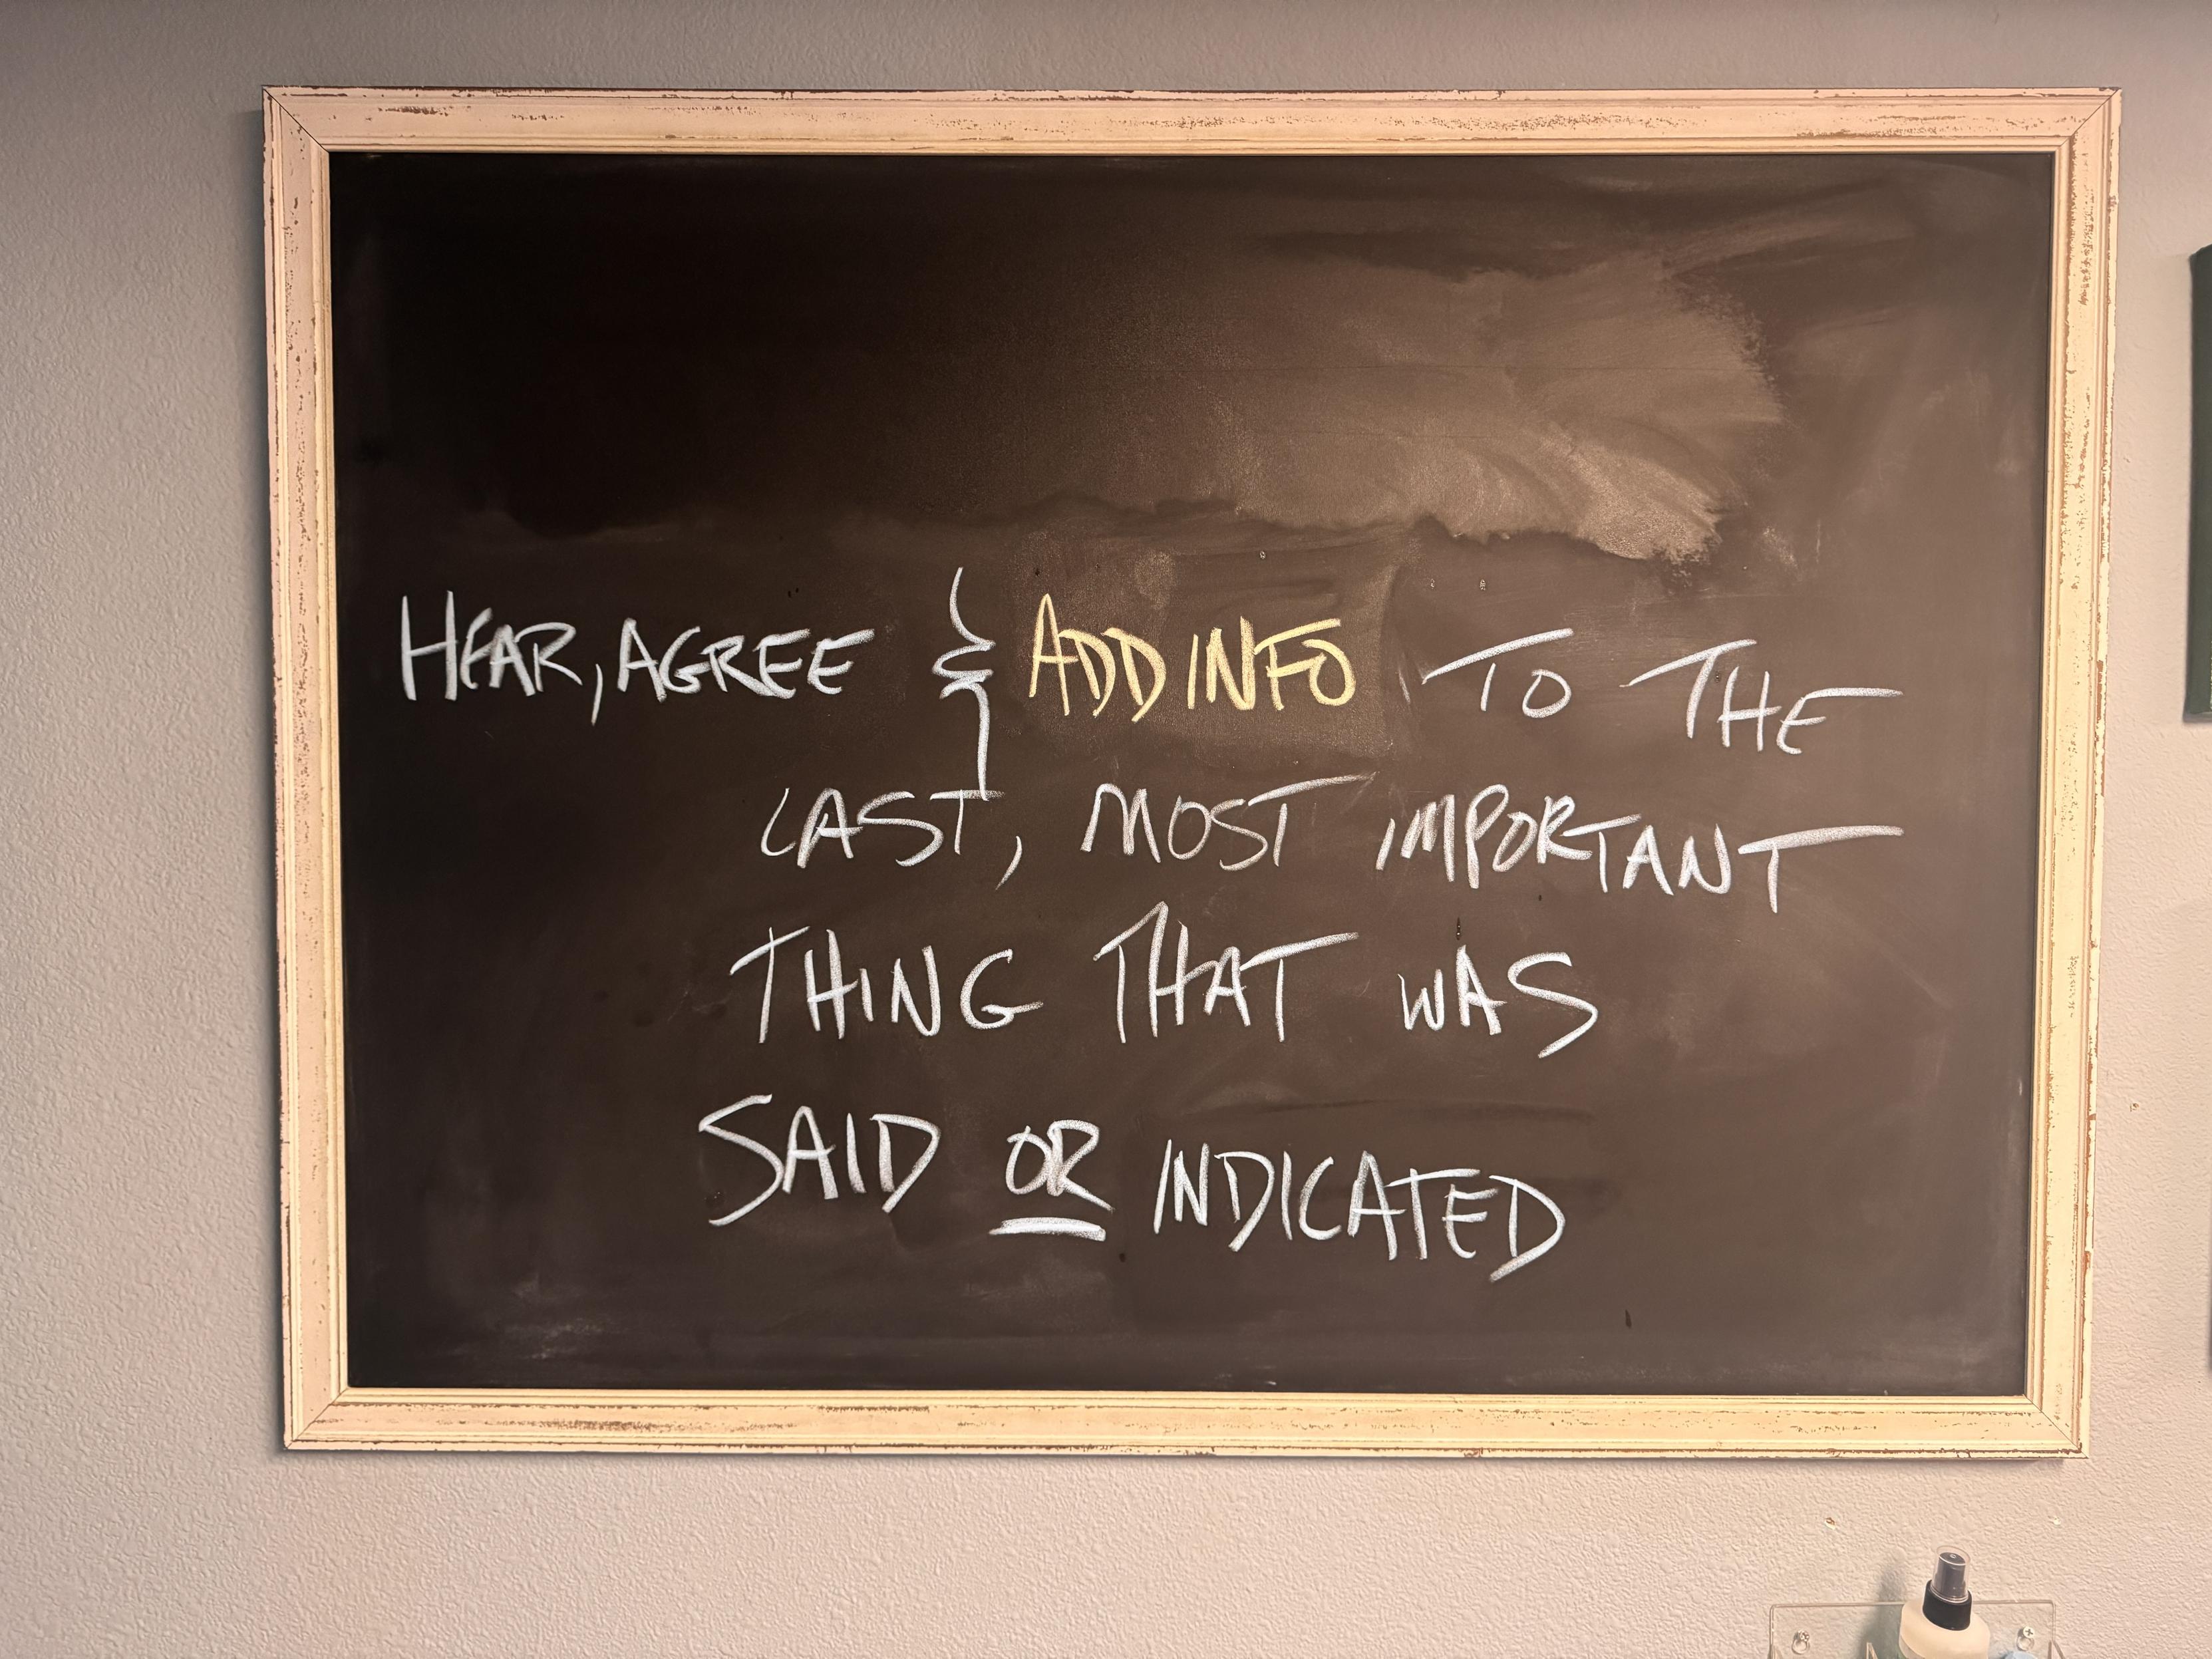 HEAR, AGREE & ADD INFO TO THE
LAST, MOST IMPORTANT
THING THAT WAS
SAID OR INDICATED